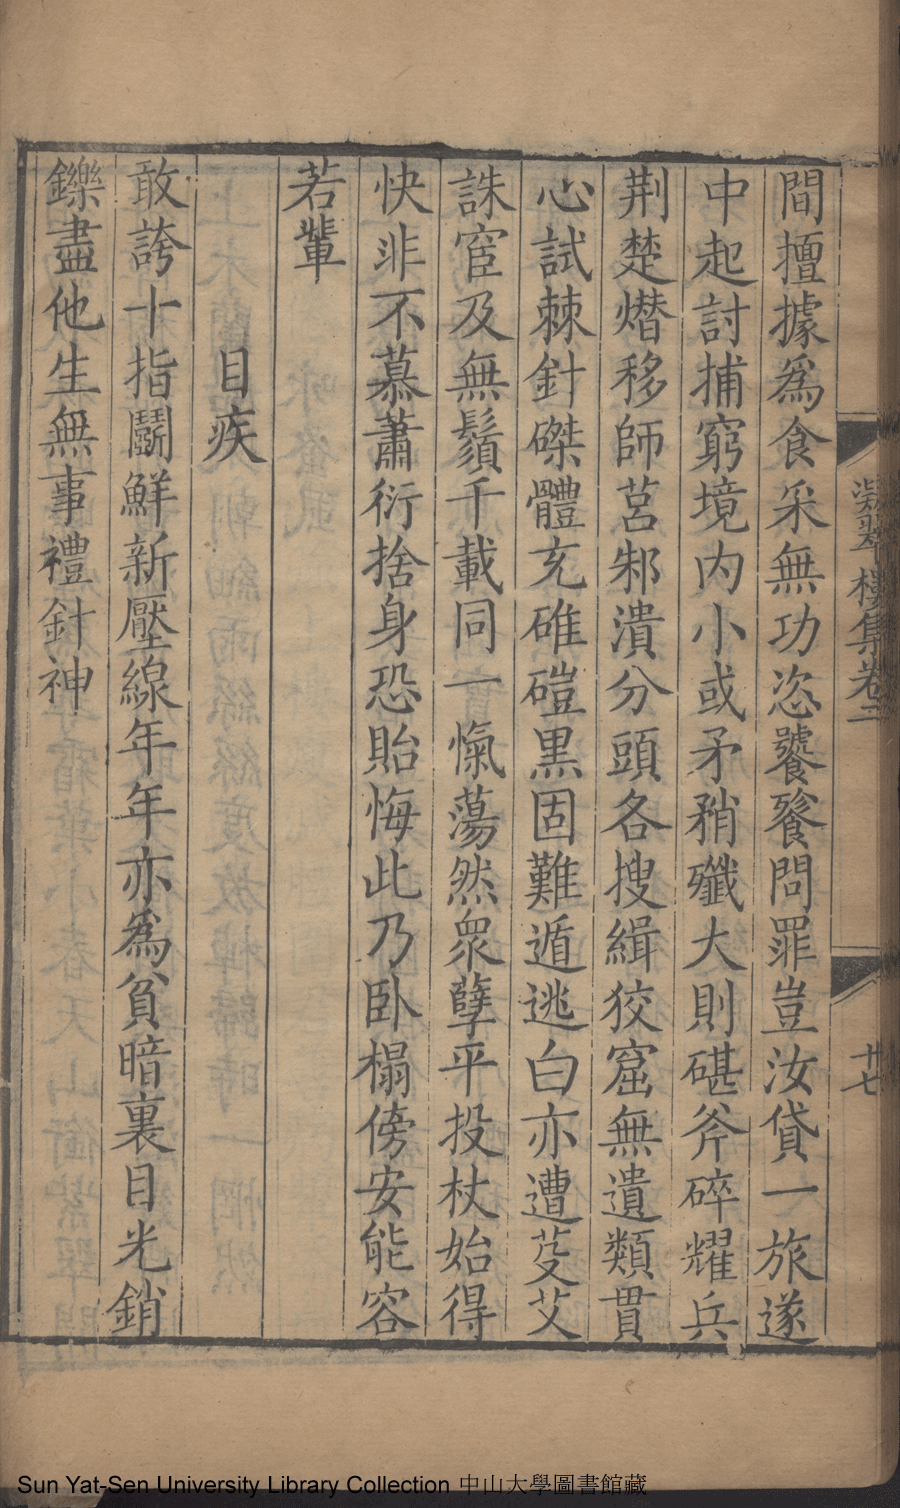 間擅據為食采無功恣饕餮問罪豈汝貸一旅遂
中起討捕窮境内小或矛矟殲大則碪斧碎耀兵
荆楚熸移師莒邾潰分頭各搜緝狡窟無遺類貫
心試棘針磔體充碓磑黒固難遁逃白亦遭芟艾
誅宦及無鬚千載同一愾蕩然衆孽平投杖始得
快非不慕蕭衍捨身恐貽悔此乃卧榻傍安能容
若輩
目疾
敢誇十指鬭鮮新壓線年年亦為貧暗裏目光銷
鑠盡他生無事禮針神
凝翠樓集卷二
廿七
Sun Yat-Sen University Library Collection 中山大學圖書館藏